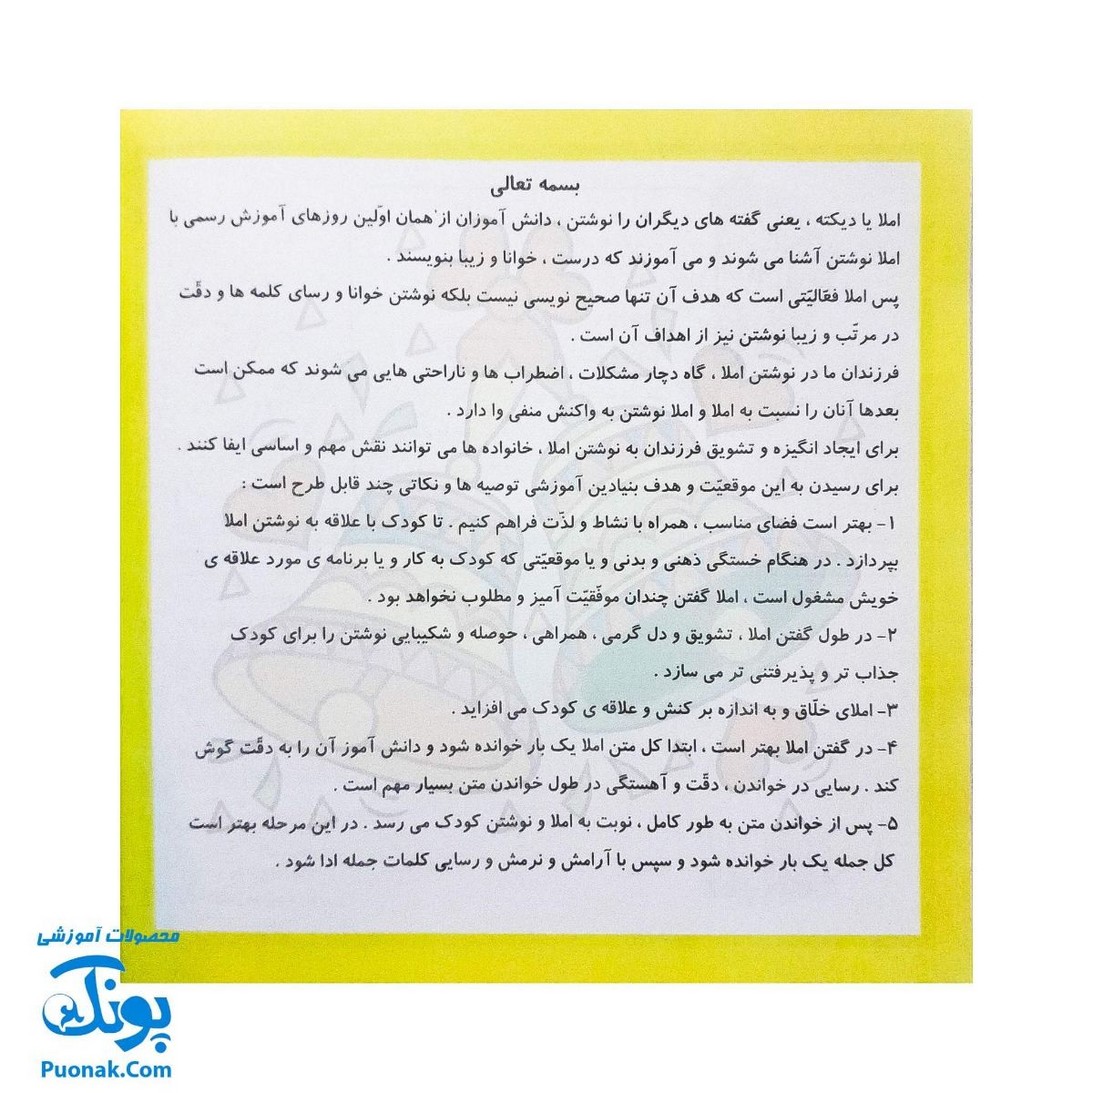 بسمه تعالی
املا یا دیکته ، یعنی گفته های دیگران را نوشتن ، دانش آموزان از همان اوّلین روزهای آموزش رسمی با
املا نوشتن آشنا می شوند و می آموزند که درست ، خوانا و زیبا بنویسند .
پس املا فعّالیّتی است که هدف آن تنها صحیح نویسی نیست بلکه نوشتن خوانا و رسای کلمه ها و دقّت
در مرتّب و زیبا نوشتن نیز از اهداف آن است .
فرزندان ما در نوشتن املا ، گاه دچار مشکلات ، اضطراب ها و ناراحتی هایی می شوند که ممکن است
بعدها آنان را نسبت به املا و املا نوشتن به واکنش منفی وا دارد .
برای ایجاد انگیزه و تشویق فرزندان به نوشتن املا ، خانواده ها می توانند نقش مهم و اساسی ایفا کنند .
برای رسیدن به این موقعیّت و هدف بنیادین آموزشی توصیه ها و نکاتی چند قابل طرح است :
۱- بهتر است فضای مناسب ، همراه با نشاط و لذّت فراهم کنیم . تا کودک با علاقه به نوشتن املا
بپردازد . در هنگام خستگی ذهنی و بدنی و یا موقعیّتی که کودک به کار و یا برنامه ی مورد علاقه ی
خویش مشغول است ، املا گفتن چندان موفّقیّت آمیز و مطلوب نخواهد بود .
۲- در طول گفتن املا ، تشویق و دل گرمی ، همراهی ، حوصله و شکیبایی نوشتن را برای کودک
جذاب تر و پذیرفتنی تر می سازد .
۳- املای خلّاق و به اندازه بر کنش و علاقه ی کودک می افزاید .
۴- در گفتن املا بهتر است ، ابتدا کل متن املا یک بار خوانده شود و دانش آموز آن را به دقّت گوش
کند . رسایی در خواندن ، دقّت و آهستگی در طول خواندن متن بسیار مهم است .
۵- پس از خواندن متن به طور کامل ، نوبت به املا و نوشتن کودک می رسد . در این مرحله بهتر است
کل جمله یک بار خوانده شود و سپس با آرامش و نرمش و رسایی کلمات جمله ادا شود .
محصولات آموزشی
پونک
Puonak.Com